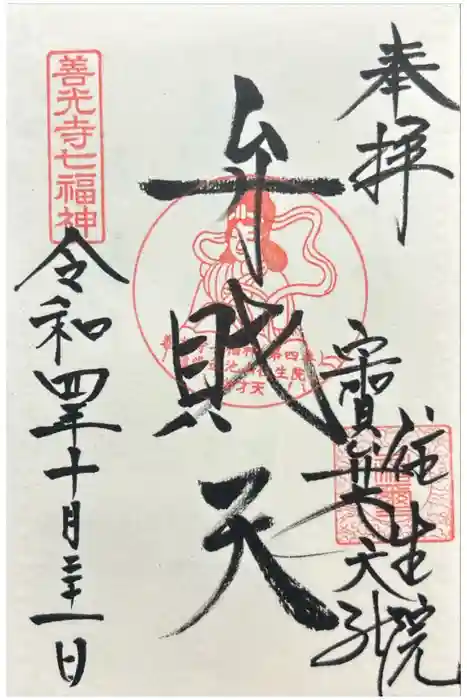 奉拝
往生院
弁財天
善光寺七福神
令和四年十月二十一日